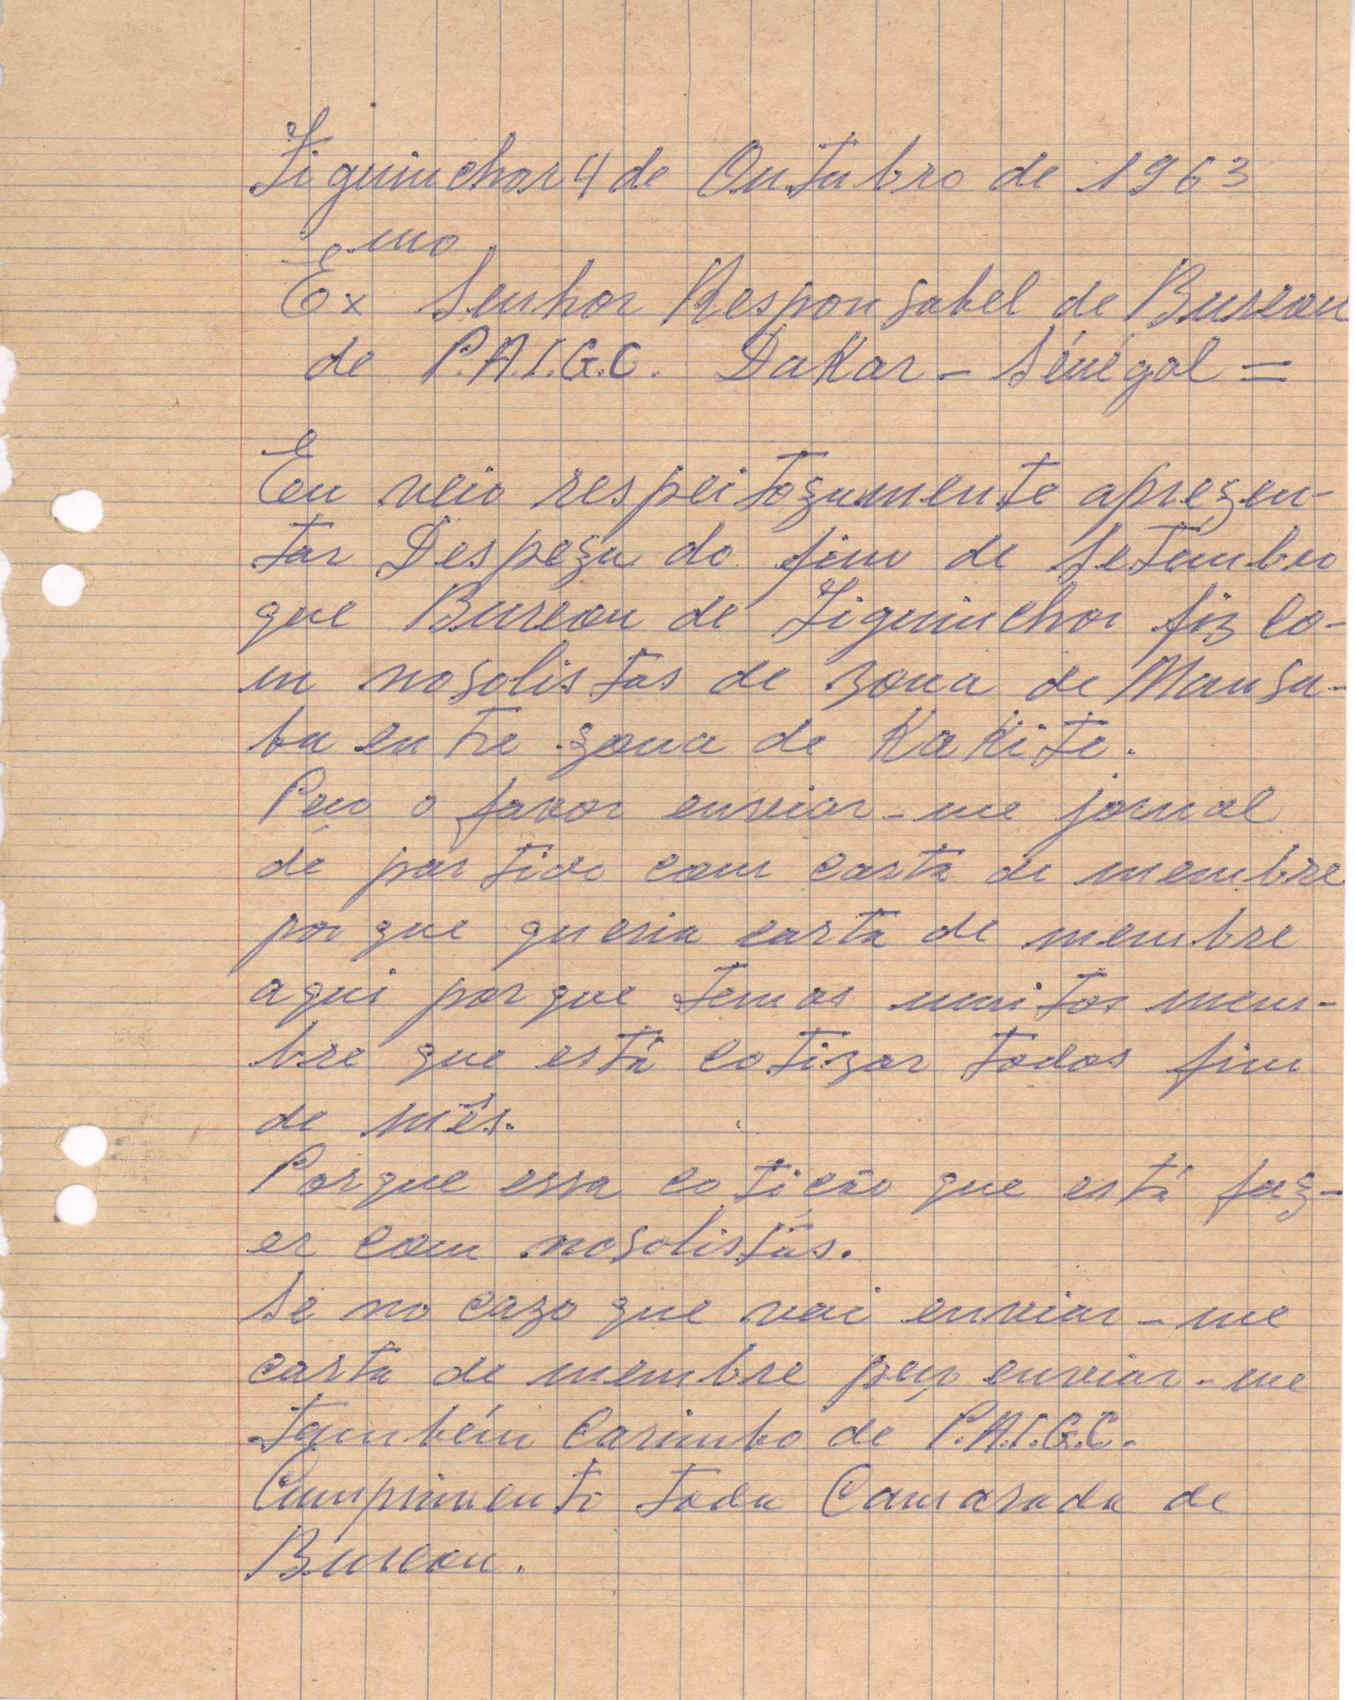 Ziguinchor 4 de Outubro de 1963
mo
Ex Senhor Responsabel de Bureau
de P.A.I.G.C. Dakar - Sénégal =
Eu veio respeitozamente aprezen-
tar Despeza do fim de Setembro
que Bureau de Ziguinchor fiz co-
m nosolistas de zona de Mansa-
ba entre zona de KaKite.
Peço o favor enviar-me jornal
de partido com carta de membre
porque queria carta de membre
aqui porque temos muitos mem-
bre que está cotizar todos fim
de mês.
Porque essa cotição que está faz-
er com nosolistas.
Se no cazo que vai enviar-me
carta de membre peço enviar-me
também Carimbo de P.A.I.G.C.
Cumprimento toda Camarada de
Bureau.